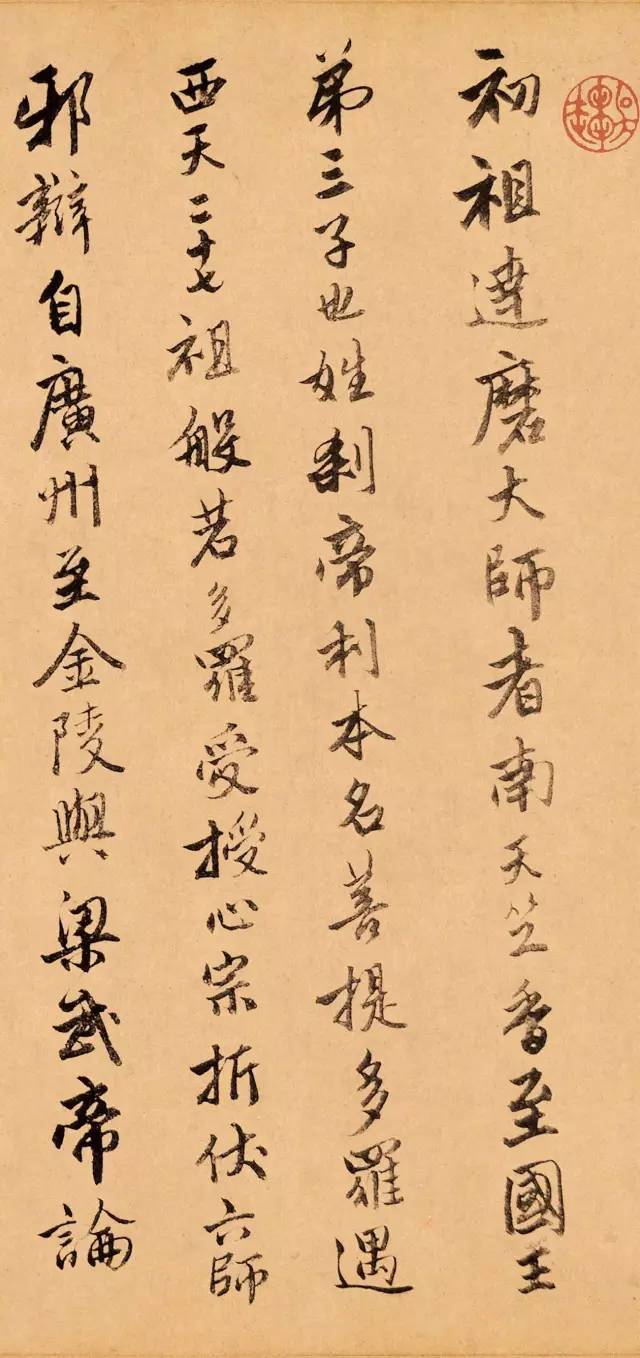 初祖達磨大師者南天竺香至國王
弟三子也姓刹帝利本名菩提多羅遇
西天二十七祖般若多羅受授心宗折伏六師
邪辯自廣州至金陵與梁武帝論